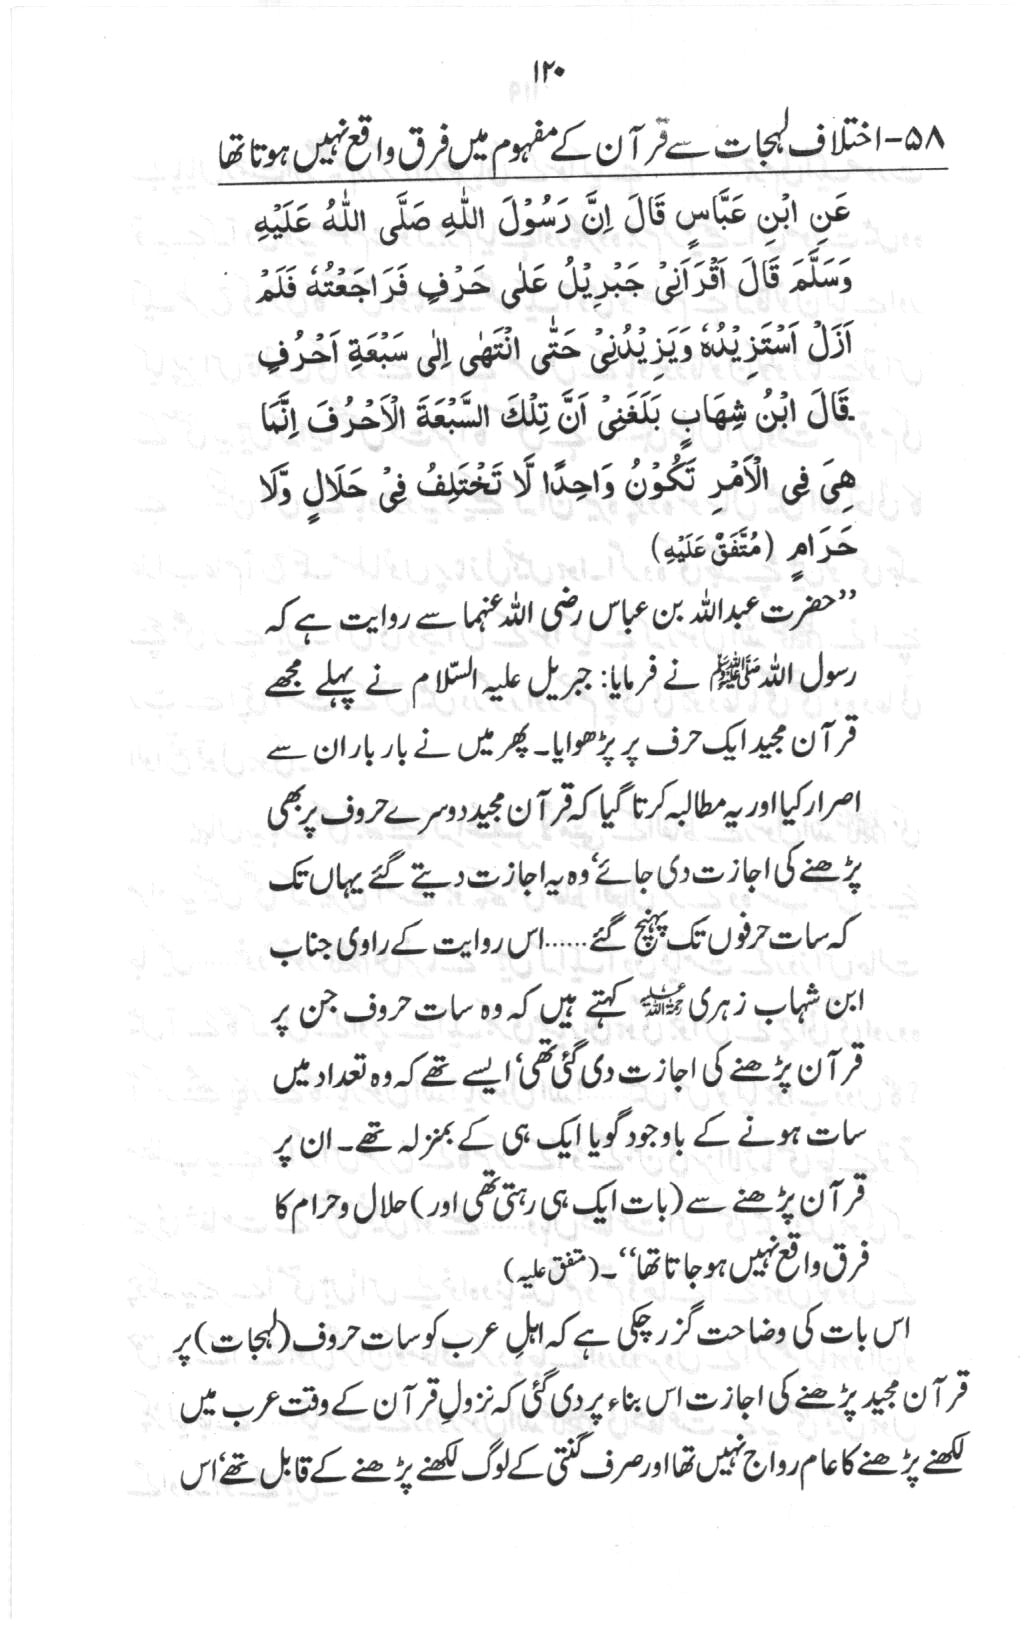 ۱۲۰
۵۸- اختلاف لہجات سے قرآن کے مفہوم میں فرق واقع نہیں ہوتا تھا
عَنِ ابْنِ عَبَّاسٍ قَالَ اِنَّ رَسُوْلَ اللّٰهِ صَلَّى اللّٰهُ عَلَيْهِ
وَسَلَّمَ قَالَ اَقْرَاَنِيْ جَبْرِيْلُ عَلٰى حَرْفٍ فَرَاجَعْتُهٗ فَلَمْ
اَزَلْ اَسْتَزِيْدُهٗ وَيَزِيْدُنِيْ حَتّٰى انْتَهٰى اِلٰى سَبْعَةِ اَحْرُفٍ
قَالَ ابْنُ شِهَابٍ بَلَغَنِيْ اَنَّ تِلْكَ السَّبْعَةَ الْاَحْرُفَ اِنَّمَا
هِيَ فِي الْاَمْرِ تَكُوْنُ وَاحِدًا لَّا تَخْتَلِفُ فِيْ حَلَالٍ وَّلَا
حَرَامٍ (مُتَّفَقٌ عَلَيْهِ)
’’حضرت عبداللہ بن عباس رضی اللہ عنہما سے روایت ہے کہ
رسول اللہ ﷺ نے فرمایا: جبریل علیہ السّلام نے پہلے مجھے
قرآن مجید ایک حرف پر پڑھوایا۔ پھر میں نے بار بار ان سے
اصرار کیا اور یہ مطالبہ کرتا گیا کہ قرآن مجید دوسرے حروف پر بھی
پڑھنے کی اجازت دی جائے‘ وہ یہ اجازت دیتے گئے یہاں تک
کہ سات حرفوں تک پہنچ گئے......اس روایت کے راوی جناب
ابن شہاب زہری رحمۃ اللہ علیہ کہتے ہیں کہ وہ سات حروف جن پر
قرآن پڑھنے کی اجازت دی گئی تھی‘ ایسے تھے کہ وہ تعداد میں
سات ہونے کے باوجود گویا ایک ہی کے بمنزلہ تھے۔ ان پر
قرآن پڑھنے سے (بات ایک ہی رہتی تھی اور) حلال و حرام کا
فرق واقع نہیں ہو جاتا تھا‘‘۔ (متفق علیہ)
اس بات کی وضاحت گزر چکی ہے کہ اہلِ عرب کو سات حروف (لہجات) پر
قرآن مجید پڑھنے کی اجازت اس بناء پر دی گئی کہ نزولِ قرآن کے وقت عرب میں
لکھنے پڑھنے کا عام رواج نہیں تھا اور صرف گنتی کے لوگ لکھنے پڑھنے کے قابل تھے‘ اس